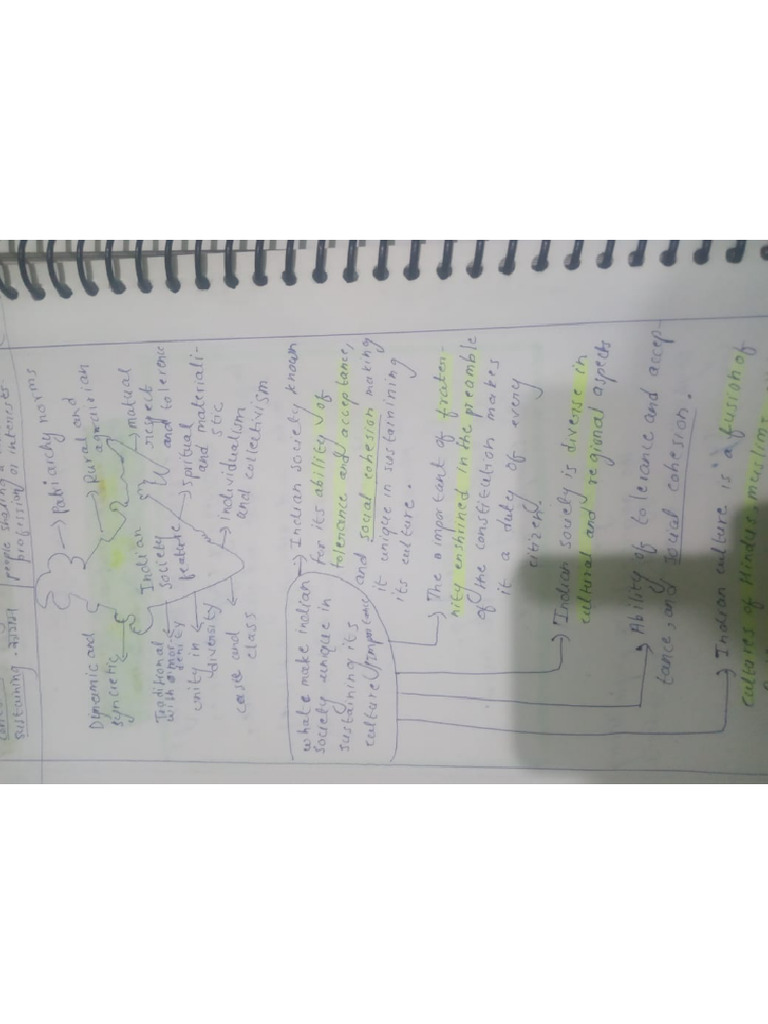 sustaining -
people sharing a
profession or interests.
→ Patriarchy norms
Dynamic and
syncretic
→ Rural and
agrarian
Traditional
with
mor-
dernity
Indian
society
feature
→ mutual
respect
and tolerence
unity in
diversity
→ spritual
and materiali-
stic
caste and
class
→ individualism
and collectivism
what make indian
society unique in
sustaining its
culture/importancy
→ Indian society known
for its ability of
tolerance and acceptance,
and social cohesion making
it unique in sustainining
its culture.
→ The important of frater-
nity enshrined in the preamble
of the constitution makes
it a duty of every
citizen.
→ Indian society is diverse in
cultural and regional aspects
→ Ability of tolerance and accep-
tance, and social cohesion.
→ Indian culture is a fusion of
cultures of Hindus, muslims